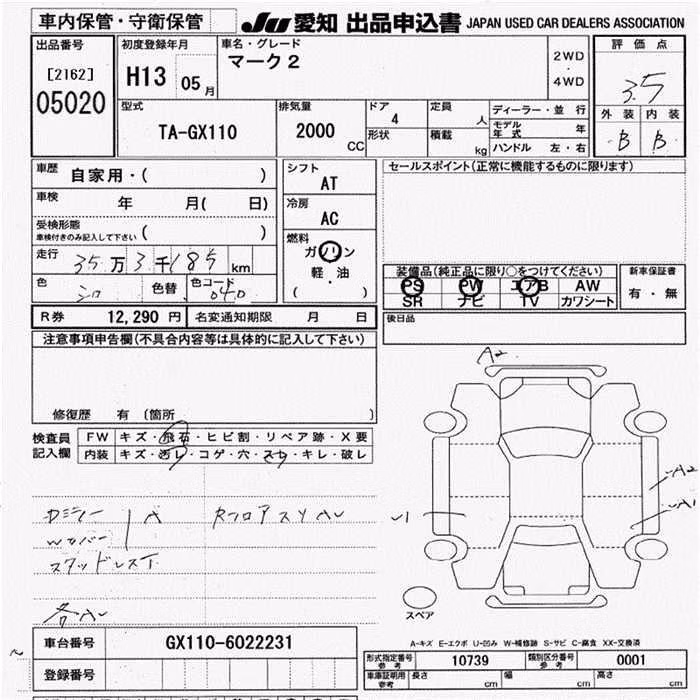 車内保管・守衛保管
JU 愛知 出品申込書 JAPAN USED CAR DEALERS ASSOCIATION
出品番号
[2162]
05020
初度登録年月
H13 05月
車名・グレード
マーク2
2WD
・
4WD
評価点
3.5
外装 内装
B B
型式
TA-GX110
排気量
2000
CC
ドア
4
形状
定員
人
積載
kg
ディーラー・並行
モデル年式 年
ハンドル 左・右
車歴 自家用・( )
車検 年 月( 日)
受検形態
車検付きのみ記入して下さい ( )
走行 35万3千185km
色 シロ 色替 色コード 040
シフト
AT
冷房
AC
燃料
ガソリン
軽・油
( )
セールスポイント(正常に機能するものに限ります)
装備品(純正品に限り○をつけてください)
PS PW エアB AW
SR ナビ TV カワシート
新車保証書
有・無
後日品
R券 12,290円 名変通知期限 月 日
注意事項申告欄(不具合内容等は具体的に記入して下さい)
修復歴 有 (箇所 )
検査員記入欄
FW キズ・飛石・ヒビ割・リペア跡・X要
内装 キズ・汚レ・コゲ・穴・スレ・キレ・破レ
A2
A2
A1
スタッドレス
スペア
A-キズ E-エクボ U-凹み W-補修跡 S-サビ C-腐食 XX-交換済
車台番号 GX110-6022231
登録番号
形式指定番号 参考 10739 類別区分番号 参考 0001
車庫証明用 参考 長さ cm 幅 cm 高さ cm